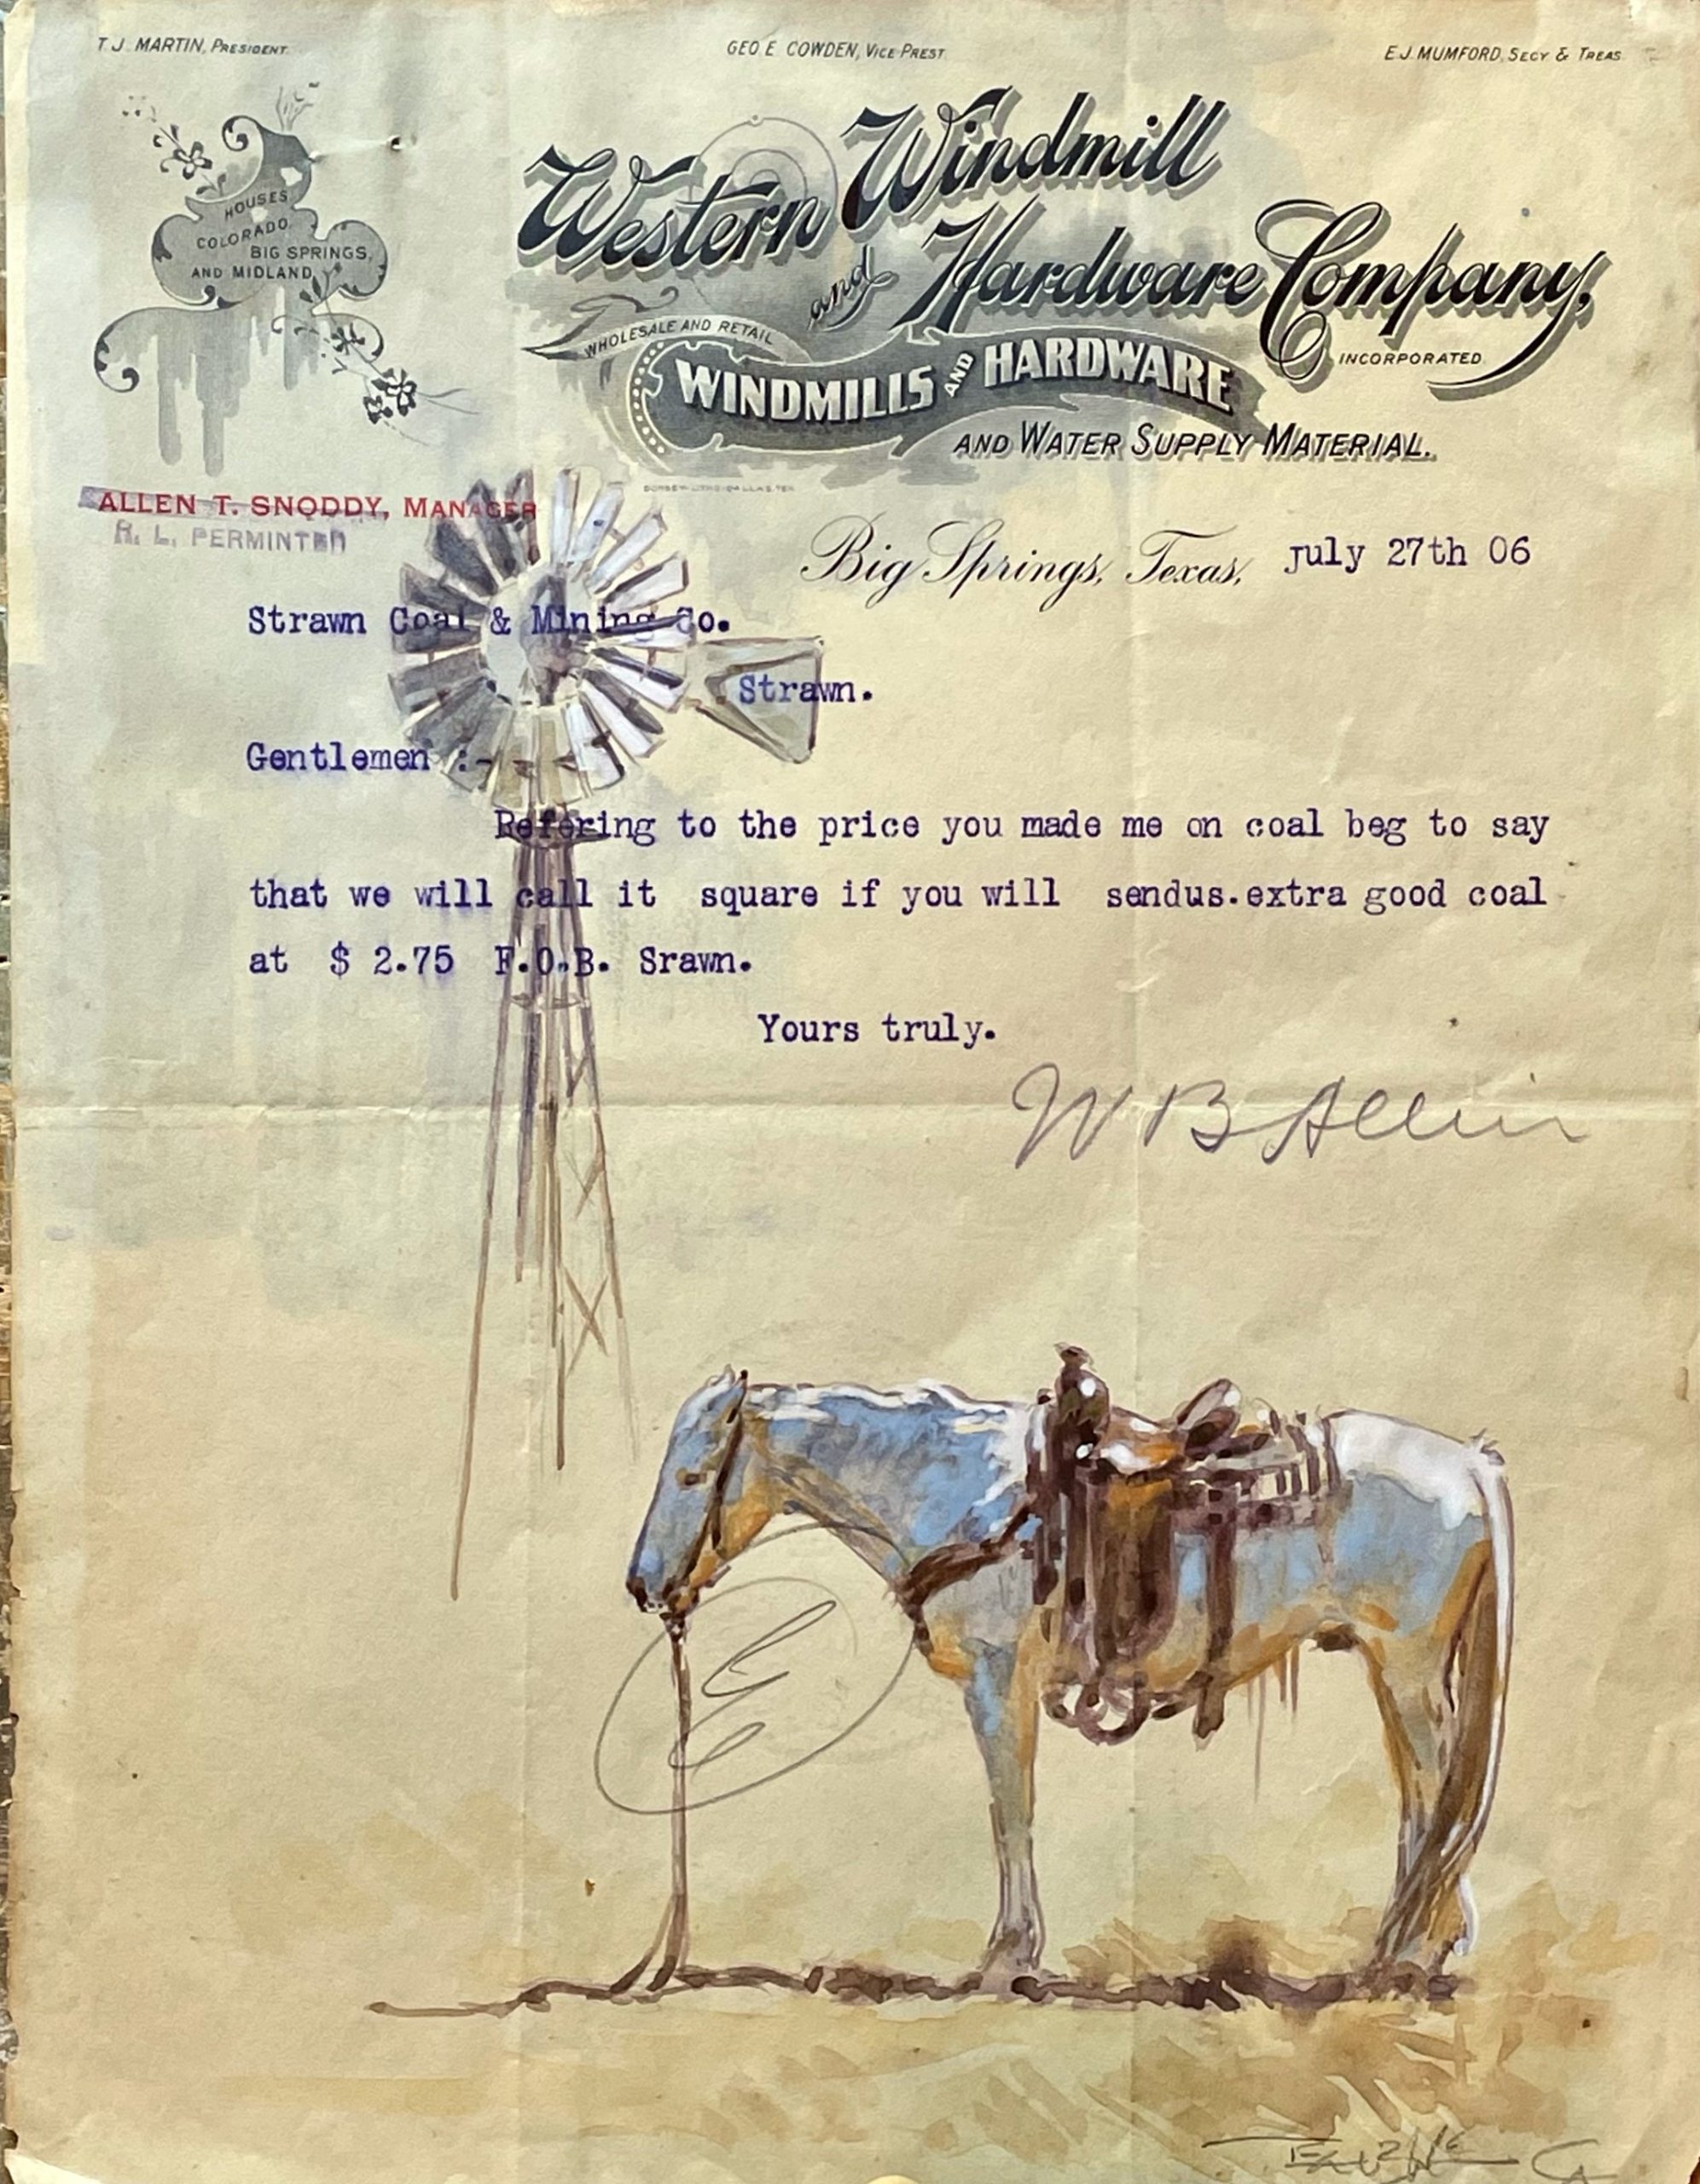 T. J. MARTIN, PRESIDENT.
GEO E. COWDEN, VICE PREST.
E. J. MUMFORD, SECY & TREAS.
HOUSES
COLORADO.
BIG SPRINGS,
AND MIDLAND
Western Windmill
and Hardware Company,
INCORPORATED.
WHOLESALE AND RETAIL
WINDMILLS AND HARDWARE
AND WATER SUPPLY MATERIAL.
ALLEN T. SNODDY, MANAGER
R. L. PERMINTER
Big Springs, Texas, July 27th 06
Strawn Coal & Mining Co.
Strawn.
Gentlemen :-
Refering to the price you made me on coal beg to say
that we will call it square if you will sendus.extra good coal
at $ 2.75 F.O.B. Srawn.
Yours truly.
W B Allin